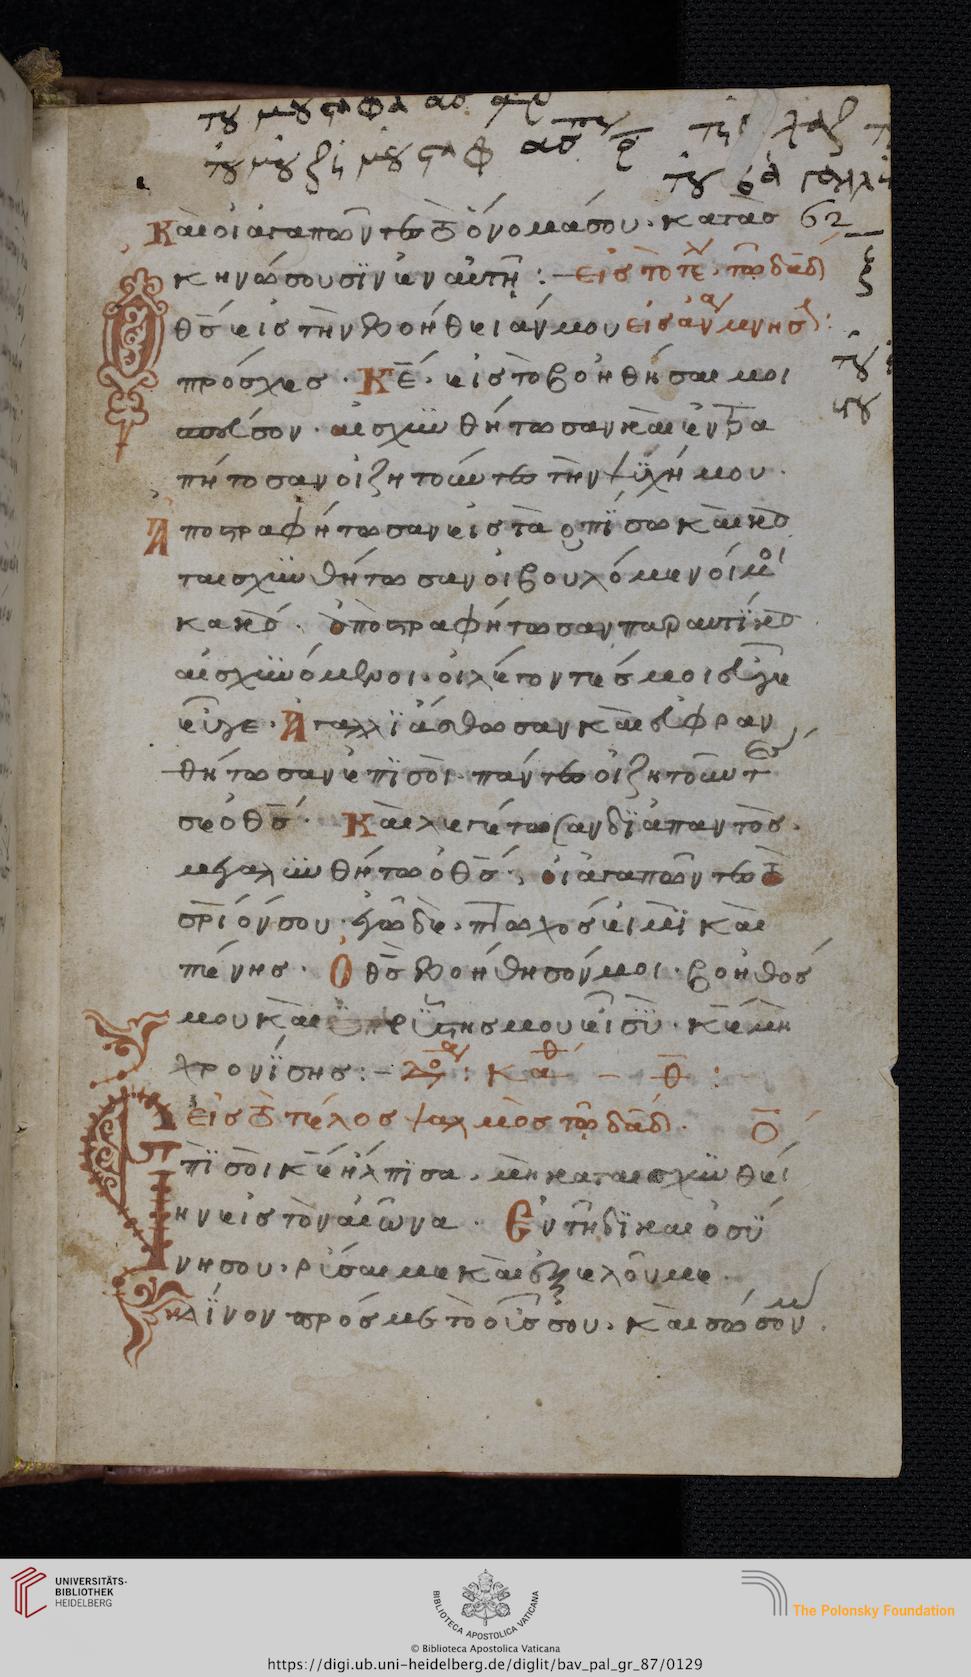 τȣ μȣσταφα
τȣ μȣξι μȣσταφ
τȣ
Καὶ οἱ ἀγαπῶντες τὸ ὄνομά σου· κατασ 62
κηνώσουσϊν ἐν αὐτῆ :– εἰς τὸ τέλ τῶ δαδ
θς εἰς τὴν βοήθειάν μου εἰς ἀνάμνησ :
πρόσχες · Κε · εἰς τὸ βοηθῆσαι μοι
σπεῦσον · αἰσχϋνθήτωσαν καὶ ἐντρα
πήτοσαν οἱ ζητοῦντες τὴν ψϋχή μου ·
Ἀποστραφήτωσαν εἰς τὰ ὀπΐσω καὶ κα
ταισχϋνθήτωσαν οἱ βουλόμενοί μοι
κακά · ἀποστραφήτωσαν παραυτΐκα
αἰσχϋνόμενοι · οἱ λέγοντές μοι εὖγε
εὖγε · Ἀγαλλϊάσθωσαν καὶ εὐφραν
θήτωσαν ἐπῒ σοὶ · πάντες οἱ ζητοῦντες
σε ὁ θς · Καὶ λεγέτωσαν δϊἀπαντὸς ·
μεγαλϋνθήτω ὁ θς · οἱ ἀγαπῶντες τὸ
σριόν σου · ἐγὼ δὲ · πτωχός εἰμϊ καὶ
πένης · Ὁ θς βοήθησόν μοι · βοηθός
μου καὶ ῥϋστης μου εἶ σϋ · κε μὴ
χρονΐσης :– δόξα : καθ – θ :
εἰς τὸ τέλος ψαλμὸς τῶ δαδ · ο
Ἐπῒ σοὶ κε ἤλπισα · μὴ καταισχϋνθεί
ην εἰς τὸν αἰῶνα · Ἐν τῆ δϊκαιοσΰ
νη σου · ρῦσαι με καὶ ἐξελοῦ με ·
κλῖνον πρός με τὸ οὖς σου · καὶ σῶσόν μ ·
UNIVERSITÄTS-
BIBLIOTHEK
HEIDELBERG
BIBLIOTECA APOSTOLICA VATICANA
The Polonsky Foundation
© Biblioteca Apostolica Vaticana
https://digi.ub.uni-heidelberg.de/diglit/bav_pal_gr_87/0129